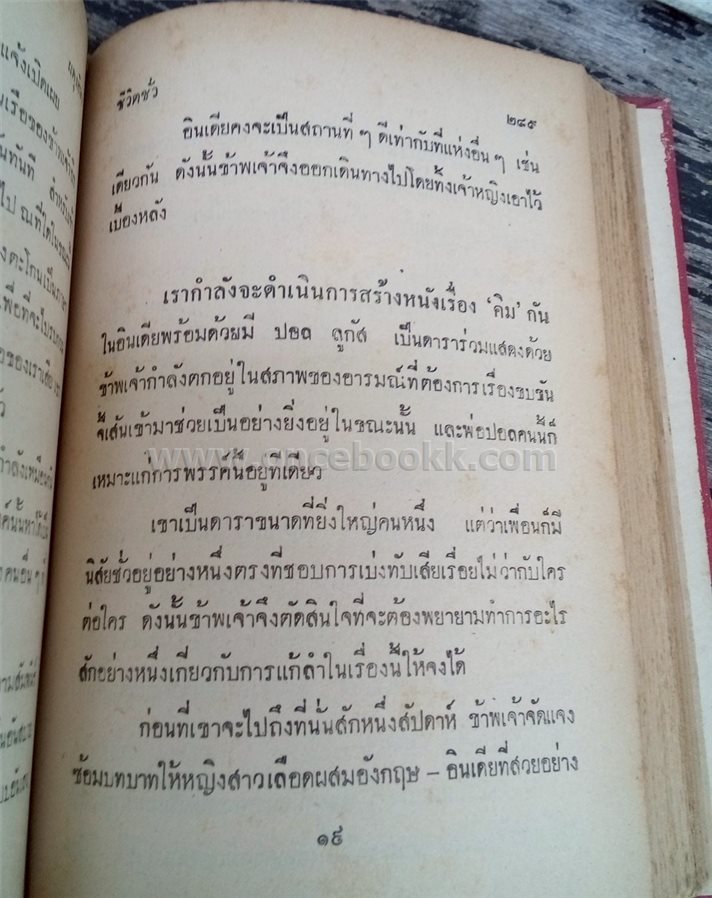 ชีวิตชั่ว
๒๔๙
อินเดียคงจะเป็นสถานที่ ๆ ดีเท่ากับที่แห่งอื่น ๆ เช่น
เดียวกัน ดังนั้นข้าพเจ้าจึงออกเดินทางไปโดยทิ้งเจ้าหญิงเอาไว้
เบื้องหลัง
เรากำลังจะดำเนินการสร้างหนังเรื่อง ‘คิม’ กัน
ในอินเดียพร้อมด้วยมี ปอล ลูกัส เป็นดาราร่วมแสดงด้วย
ข้าพเจ้ากำลังตกอยู่ในสภาพของอารมณ์ที่ต้องการเรื่องขบขัน
จี้เส้นเข้ามาช่วยเป็นอย่างยิ่งอยู่ในขณะนั้น และพ่อปอลคนนี้ก็
เหมาะแก่การพรรค์นี้อยู่ทีเดียว
www.oncebookk.com
เขาเป็นดาราขนาดที่ยิ่งใหญ่คนหนึ่ง แต่ว่าเพื่อนก็มี
นิสัยชั่วอยู่อย่างหนึ่งตรงที่ชอบการเบ่งทับเสียเรื่อยไม่ว่ากับใคร
ต่อใคร ดังนั้นข้าพเจ้าจึงตัดสินใจที่จะต้องพยายามทำการอะไร
สักอย่างหนึ่งเกี่ยวกับการแก้ลำในเรื่องนี้ให้จงได้
ก่อนที่เขาจะไปถึงที่นั่นสักหนึ่งสัปดาห์ ข้าพเจ้าจัดแจง
ซ้อมบทบาทให้หญิงสาวเลือดผสมอังกฤษ – อินเดียที่สวยอย่าง
๑๙